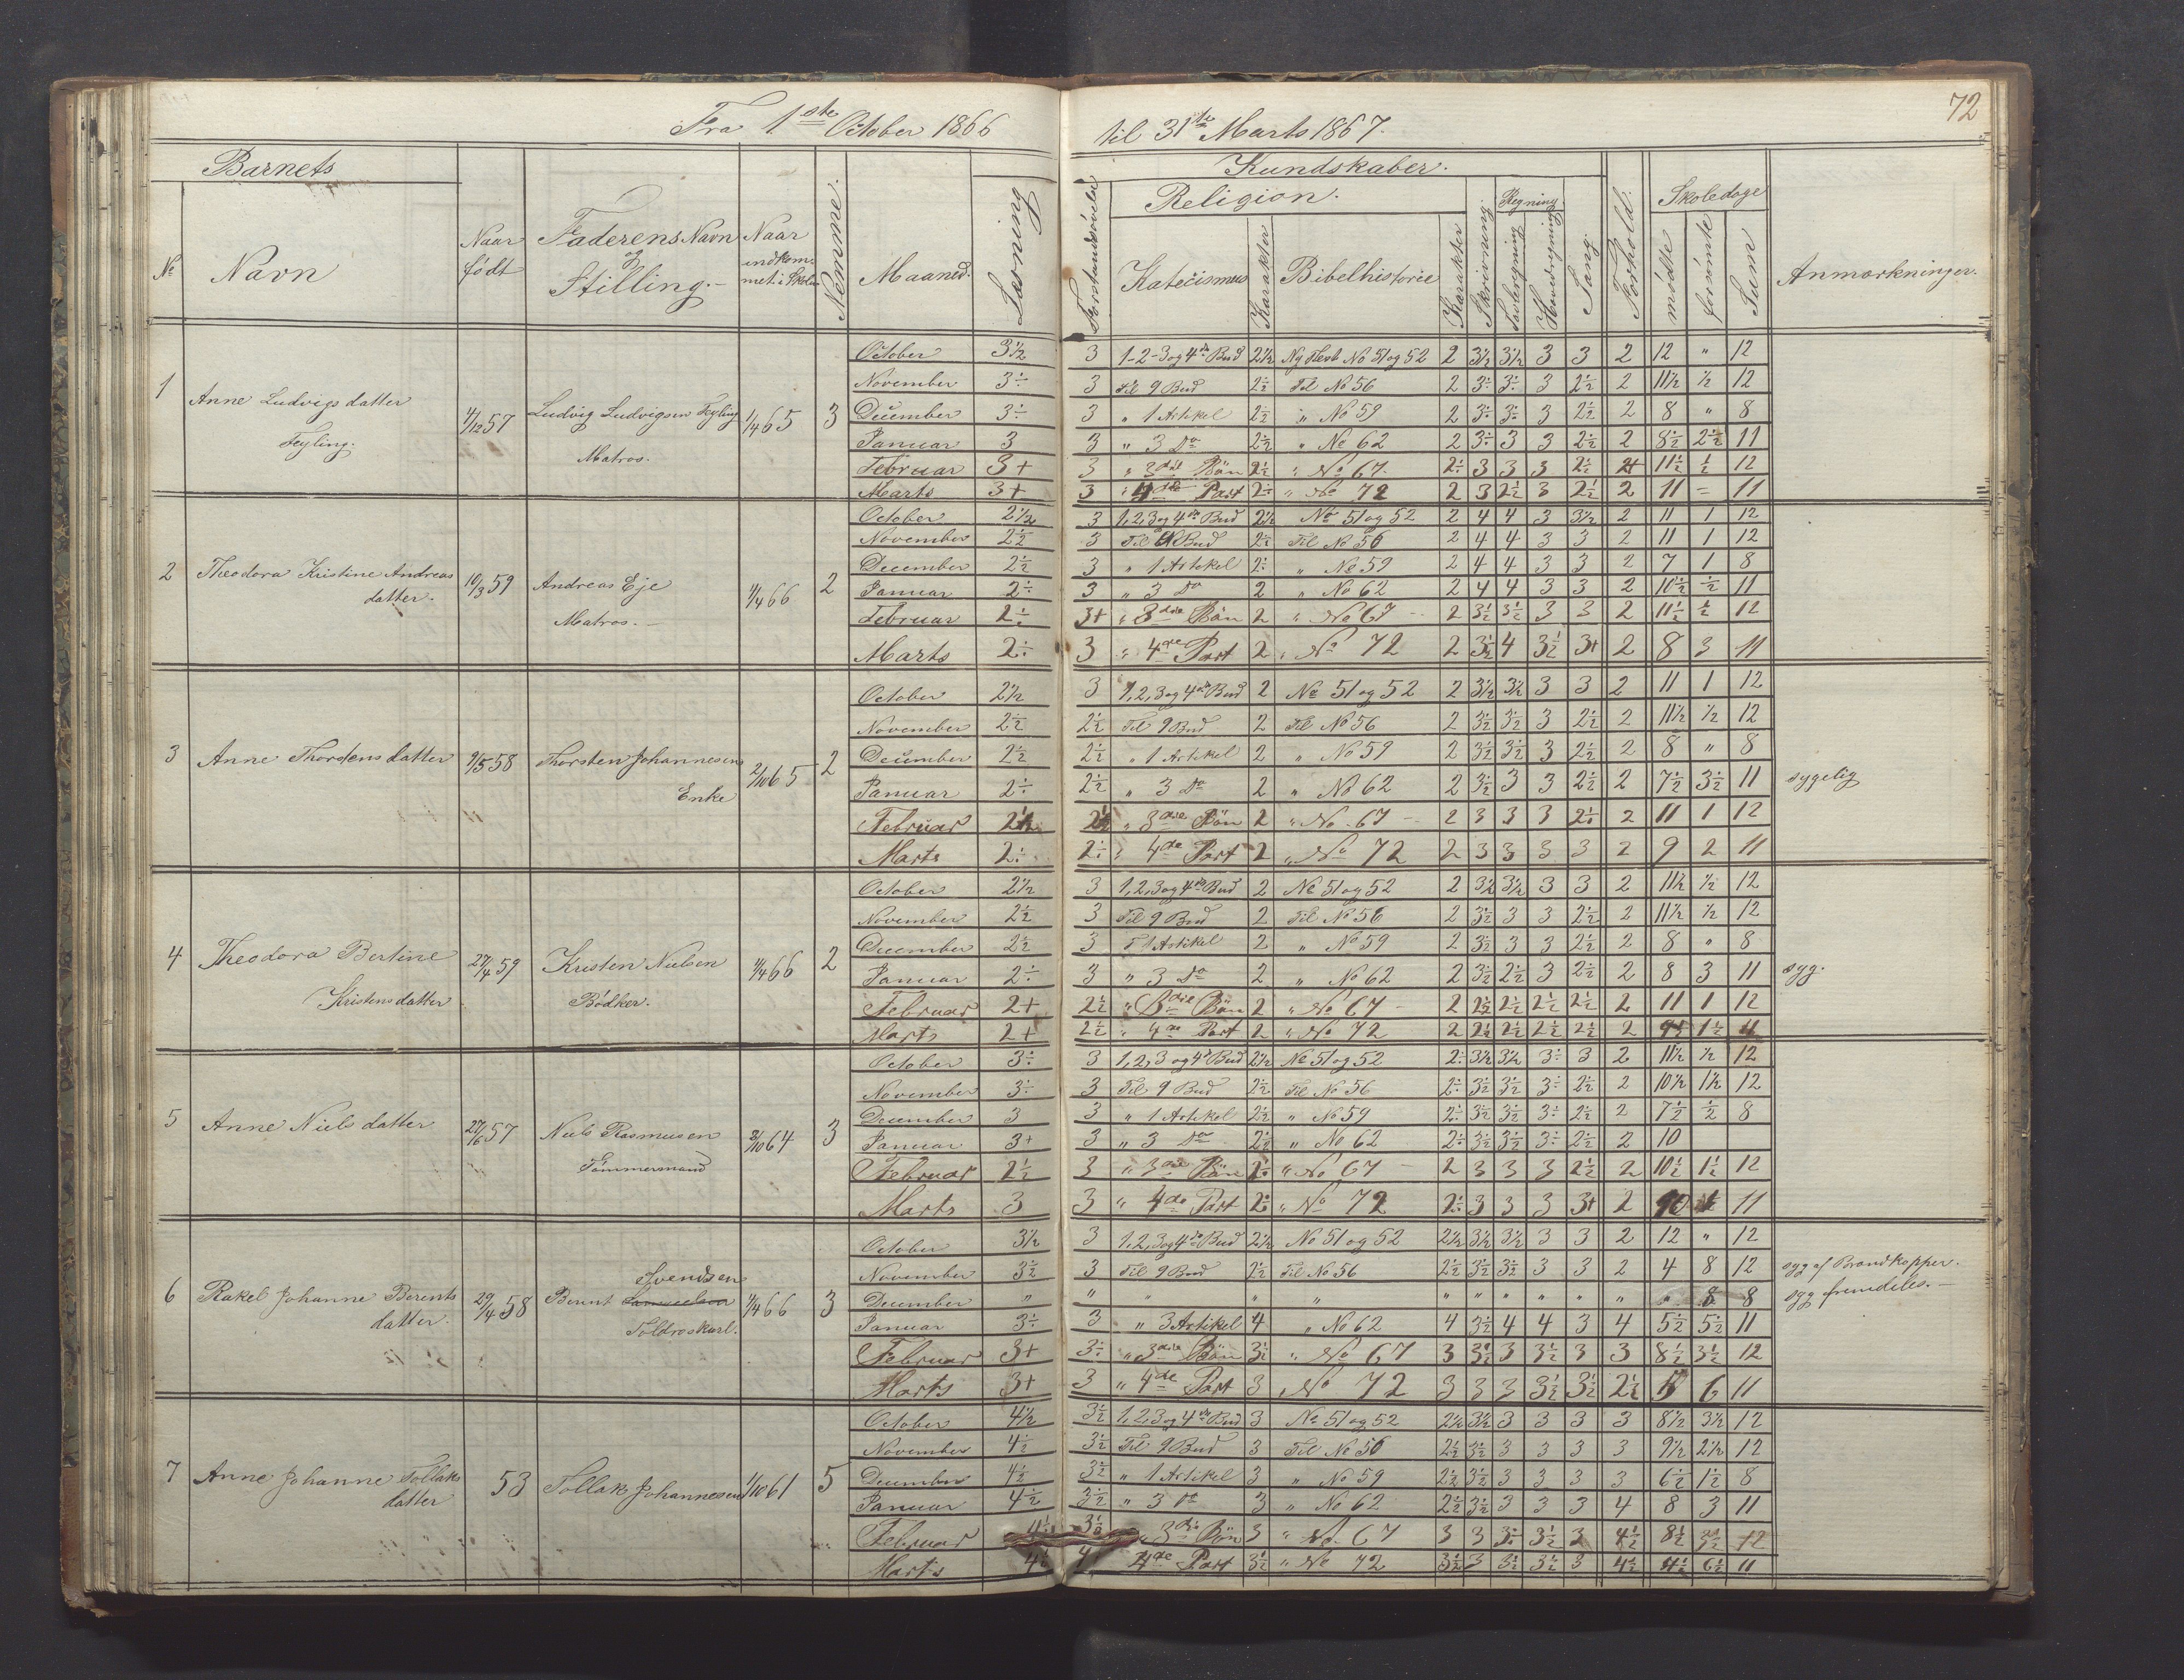 72
Fra 1ste October 1866 til 31te Marts 1867.
Barnets
No
Navn
Naar født
Faderens Navn og Stilling.
Naar indkommet i Skole
Nemme.
Maaned.
Læsning
Kundskaber.
Forstandsøvelse
Religion.
Katecismus
Karakter
Bibelhistorie
Karakter
Skrivning.
Regning
Tavleregning
Hovedregning
Sang.
Forhold.
Skoledage
mødte
forsømte
Sum
Anmærkninger.
1 Anne Ludvigsdatter Feyling. 4/12 57 Ludvig Ludvigsen Feyling Matros. 1/4 65 3
October 3½ 3 1-2-3 og 4de Bud 2½ Ny Test. No 51 og 52 2 3½ 3½ 3 3 2 12 " 12
November 3÷ 3 Til 9 Bud 2½ Til No 56 2 3÷ 3÷ 3 2½ 2 11½ ½ 12
December 3÷ 3 " 1 Artikel 2½ " No 59 2 3÷ 3÷ 3 2½ 2 8 " 8
Januar 3 3 " 3 Do 2½ " No 62 2 3÷ 3 3 2½ 2 8½ 2½ 11
Februar 3+ 3 " 3die Bøn 2½ " No 67 2÷ 3 3 3 2½ 2+ 11½ ½ 12
Marts 3+ 3 " 4de Part 2÷ " No 72 2 3 2½ 3 2½ 2 11 – 11
2 Theodora Kristine Andreasdatter. 10/3 59 Andreas Eje Matros. 4/4 66 2
October 2½ 3 1,2,3 og 4de Bud 2½ No 51 og 52 2 4 4 3 3½ 2 11 1 12
November 2½ 3 Til 9 Bud 2½ Til No 56 2 4 4 3 3 2 11 1 12
December 2½ 3 " 1 Artikel 2÷ " No 59 2 4 4 3 3 2 7 1 8
Januar 2÷ 3 " 3 Do 2 " No 62 2 4 4 3 3 2 10½ ½ 11
Februar 2÷ 3+ " 3die Bøn 2 " No 67 2 3½ 3½ 3 3 2 11½ ½ 12
Marts 2÷ 3 " 4de Part 2 " No 72 2 3½ 4 3½ 3+ 2 8 3 11
3 Anne Thordensdatter 9/5 58 Thorsten Johannesens Enke 2/10 65 2
October 2½ 3 1,2,3 og 4de Bud 2 No 51 og 52 2 3½ 3½ 3 3 2 11 1 12
November 2½ 2½ Til 9 Bud 2 Til No 56 2 3½ 3½ 3 2½ 2 11½ ½ 12
December 2½ 2½ " 1 Artikel 2 " No 59 2 3½ 3½ 3 2½ 2 8 " 8
Januar 2÷ 2½ " 3 Do 2 " No 62 2 3½ 3 3 2½ 2 7½ 3½ 11 sygelig
Februar 2½ 2½ " 3die Bøn 2 " No 67 2 3 3 3 2÷ 2 11 1 12
Marts 2÷ 2÷ " 4de Part 2 " No 72 2 3 3 3 3 2 9 2 11
4 Theodora Bertine Kristensdatter 27/4 59 Kristen Nielsen Bødker. 4/4 66 2
October 2½ 3 1,2,3 og 4de Bud 2 No 51 og 52 2 3½ 3½ 3 3 2 11½ ½ 12
November 2½ 3 Til 9 Bud 2 Til No 56 2 3½ 3 3 2½ 2 11½ ½ 12
December 2½ 3 " 1 Artikel 2 " No 59 2 3½ 3 3 2½ 2 8 " 8
Januar 2÷ 3 " 3 Do 2 " No 62 2 3½ 2½ 3 2½ 2 8 3 11 syg.
Februar 2+ 2½ " 3die Bøn 2 " No 67 2 2½ 2½ 2½ 2½ 2 11 1 12
Marts 2+ 2½ " 4de Part 2 " No 72 2 2½ 2½ 2½ 2½ 2 9½ 1½ 11
5 Anne Nielsdatter 27/6 57 Niels Rasmusen Tømmermand 3/10 64 3
October 3÷ 3 1,2,3 og 4de Bud 2½ No 51 og 52 2÷ 3½ 3½ 3÷ 3 2 11½ ½ 12
November 3÷ 3 Til 9 Bud 2½ Til No 56 2÷ 3½ 3½ 3÷ 2½ 2 10½ 1½ 12
December 3 3 " 1 Artikel 2½ " No 59 2÷ 3½ 3½ 3÷ 2½ 2 7½ ½ 8
Januar 3+ 3 " 3 Do 2½ " No 62 2÷ 3½ 3½ 3÷ 2½ 2 10
Februar 2½ 3 " 3die Bøn 2÷ " No 67 2 3 3 3 2½ 2 10½ 1½ 12
Marts 3 3 " 4de Part 2÷ " No 72 2÷ 3 3 3 3+ 2 10 1 11
6 Rakel Johanne Berentsdatter. 29/4 58 Berent Svendsen Toldroskarl. 4/4 66 3
October 3½ 3 1,2,3 og 4de Bud 2½ No 51 og 52 2½ 3½ 3½ 3 3 2 12 " 12
November 3½ 3 Til 9 Bud 2½ Til No 56 2½ 3½ 3½ 3 3 2 4 8 12 syg af Brandkopper.
December " " " " " " " " " " " " 8 8 syg fremdeles.
Januar 3÷ 3 " 3 Artikel 4 " No 62 4 3½ 4 4 3 4 5½ 5½ 11
Februar 3+ 3÷ " 3die Bøn 3½ " No 67 3 3½ 3 3½ 3 3 8½ 3½ 12
Marts 3+ 3 " 4de Part 3 " No 72 3 3 3 3½ 3½ 2½ 5 6 11
7 Anne Johanne Tollaksdatter 53 Tollak Johannesen 1/10 61 5
October 4½ 3½ 1,2,3 og 4de Bud 3 No 51 og 52 2½ 3½ 3 3 3 3 8½ 3½ 12
November 4½ 3½ Til 9 Bud 3 Til No 56 2½ 3½ 3 3 3 3 9½ 2½ 12
December 4½ 3½ " 1 Artikel 3 " No 59 2½ 3½ 3 3 3 3 6½ 1½ 8
Januar 4½ 3½ " 3 Do 3 " No 62 2½ 3½ 3 3 3 4 8 3 11
Februar 4½ 3½ " 3die Bøn 3 " No 67 3 3 3÷ 3½ 3 4½ 8½ 3½ 12
Marts 4½ 4 4de Part 3½ " No 72 3½ 3 3½ 3½ 3 4½ 4½ 6½ 11